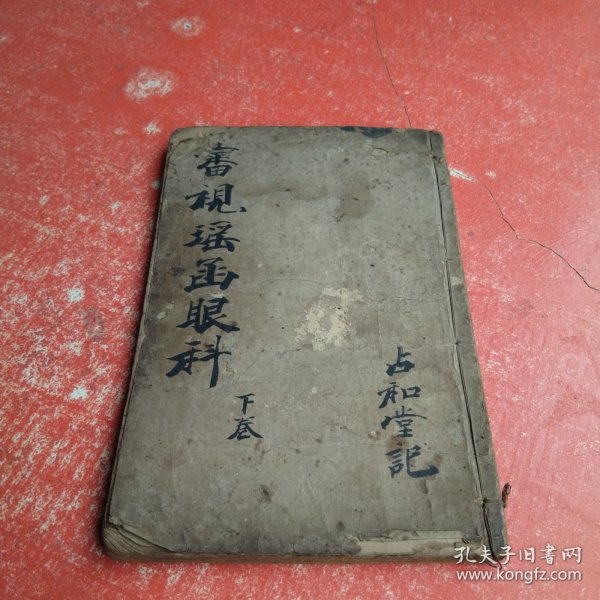 審視瑶函眼科
下卷
占和堂記
孔夫子旧书网
www.kongfz.com